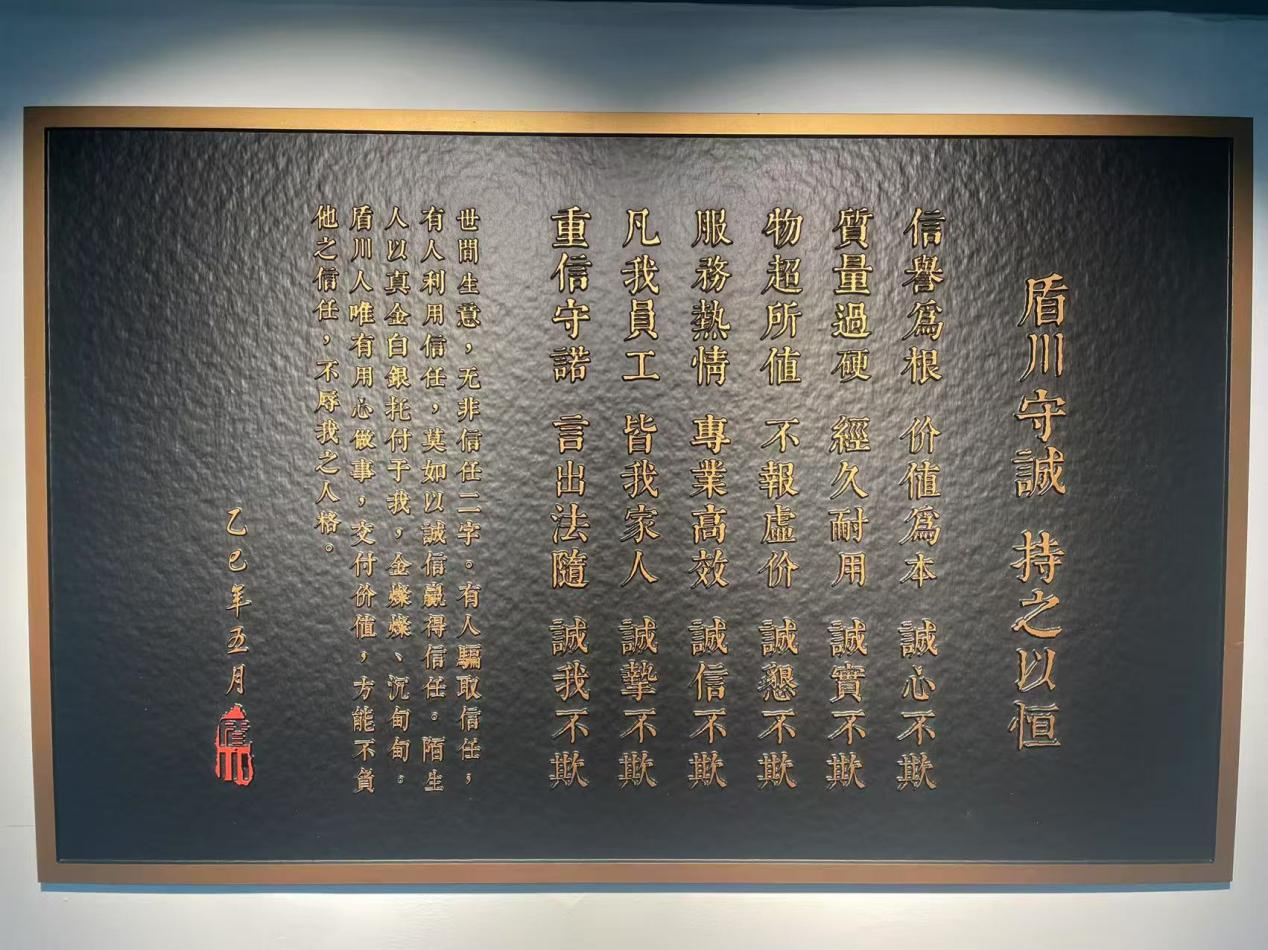 盾川守誠 持之以恒
信譽爲根 价值爲本 誠心不欺
質量過硬 經久耐用 誠實不欺
物超所值 不報虛价 誠懇不欺
服務熱情 專業高效 誠信不欺
凡我員工 皆我家人 誠摯不欺
重信守諾 言出法隨 誠我不欺
世間生意，无非信任二字。有人騙取信任，
有人利用信任，莫如以誠信贏得信任。陌生
人以真金白銀托付于我，金燦燦、沉甸甸。
盾川人唯有用心做事，交付价值，方能不負
他之信任，不辱我之人格。
乙巳年五月
盾川